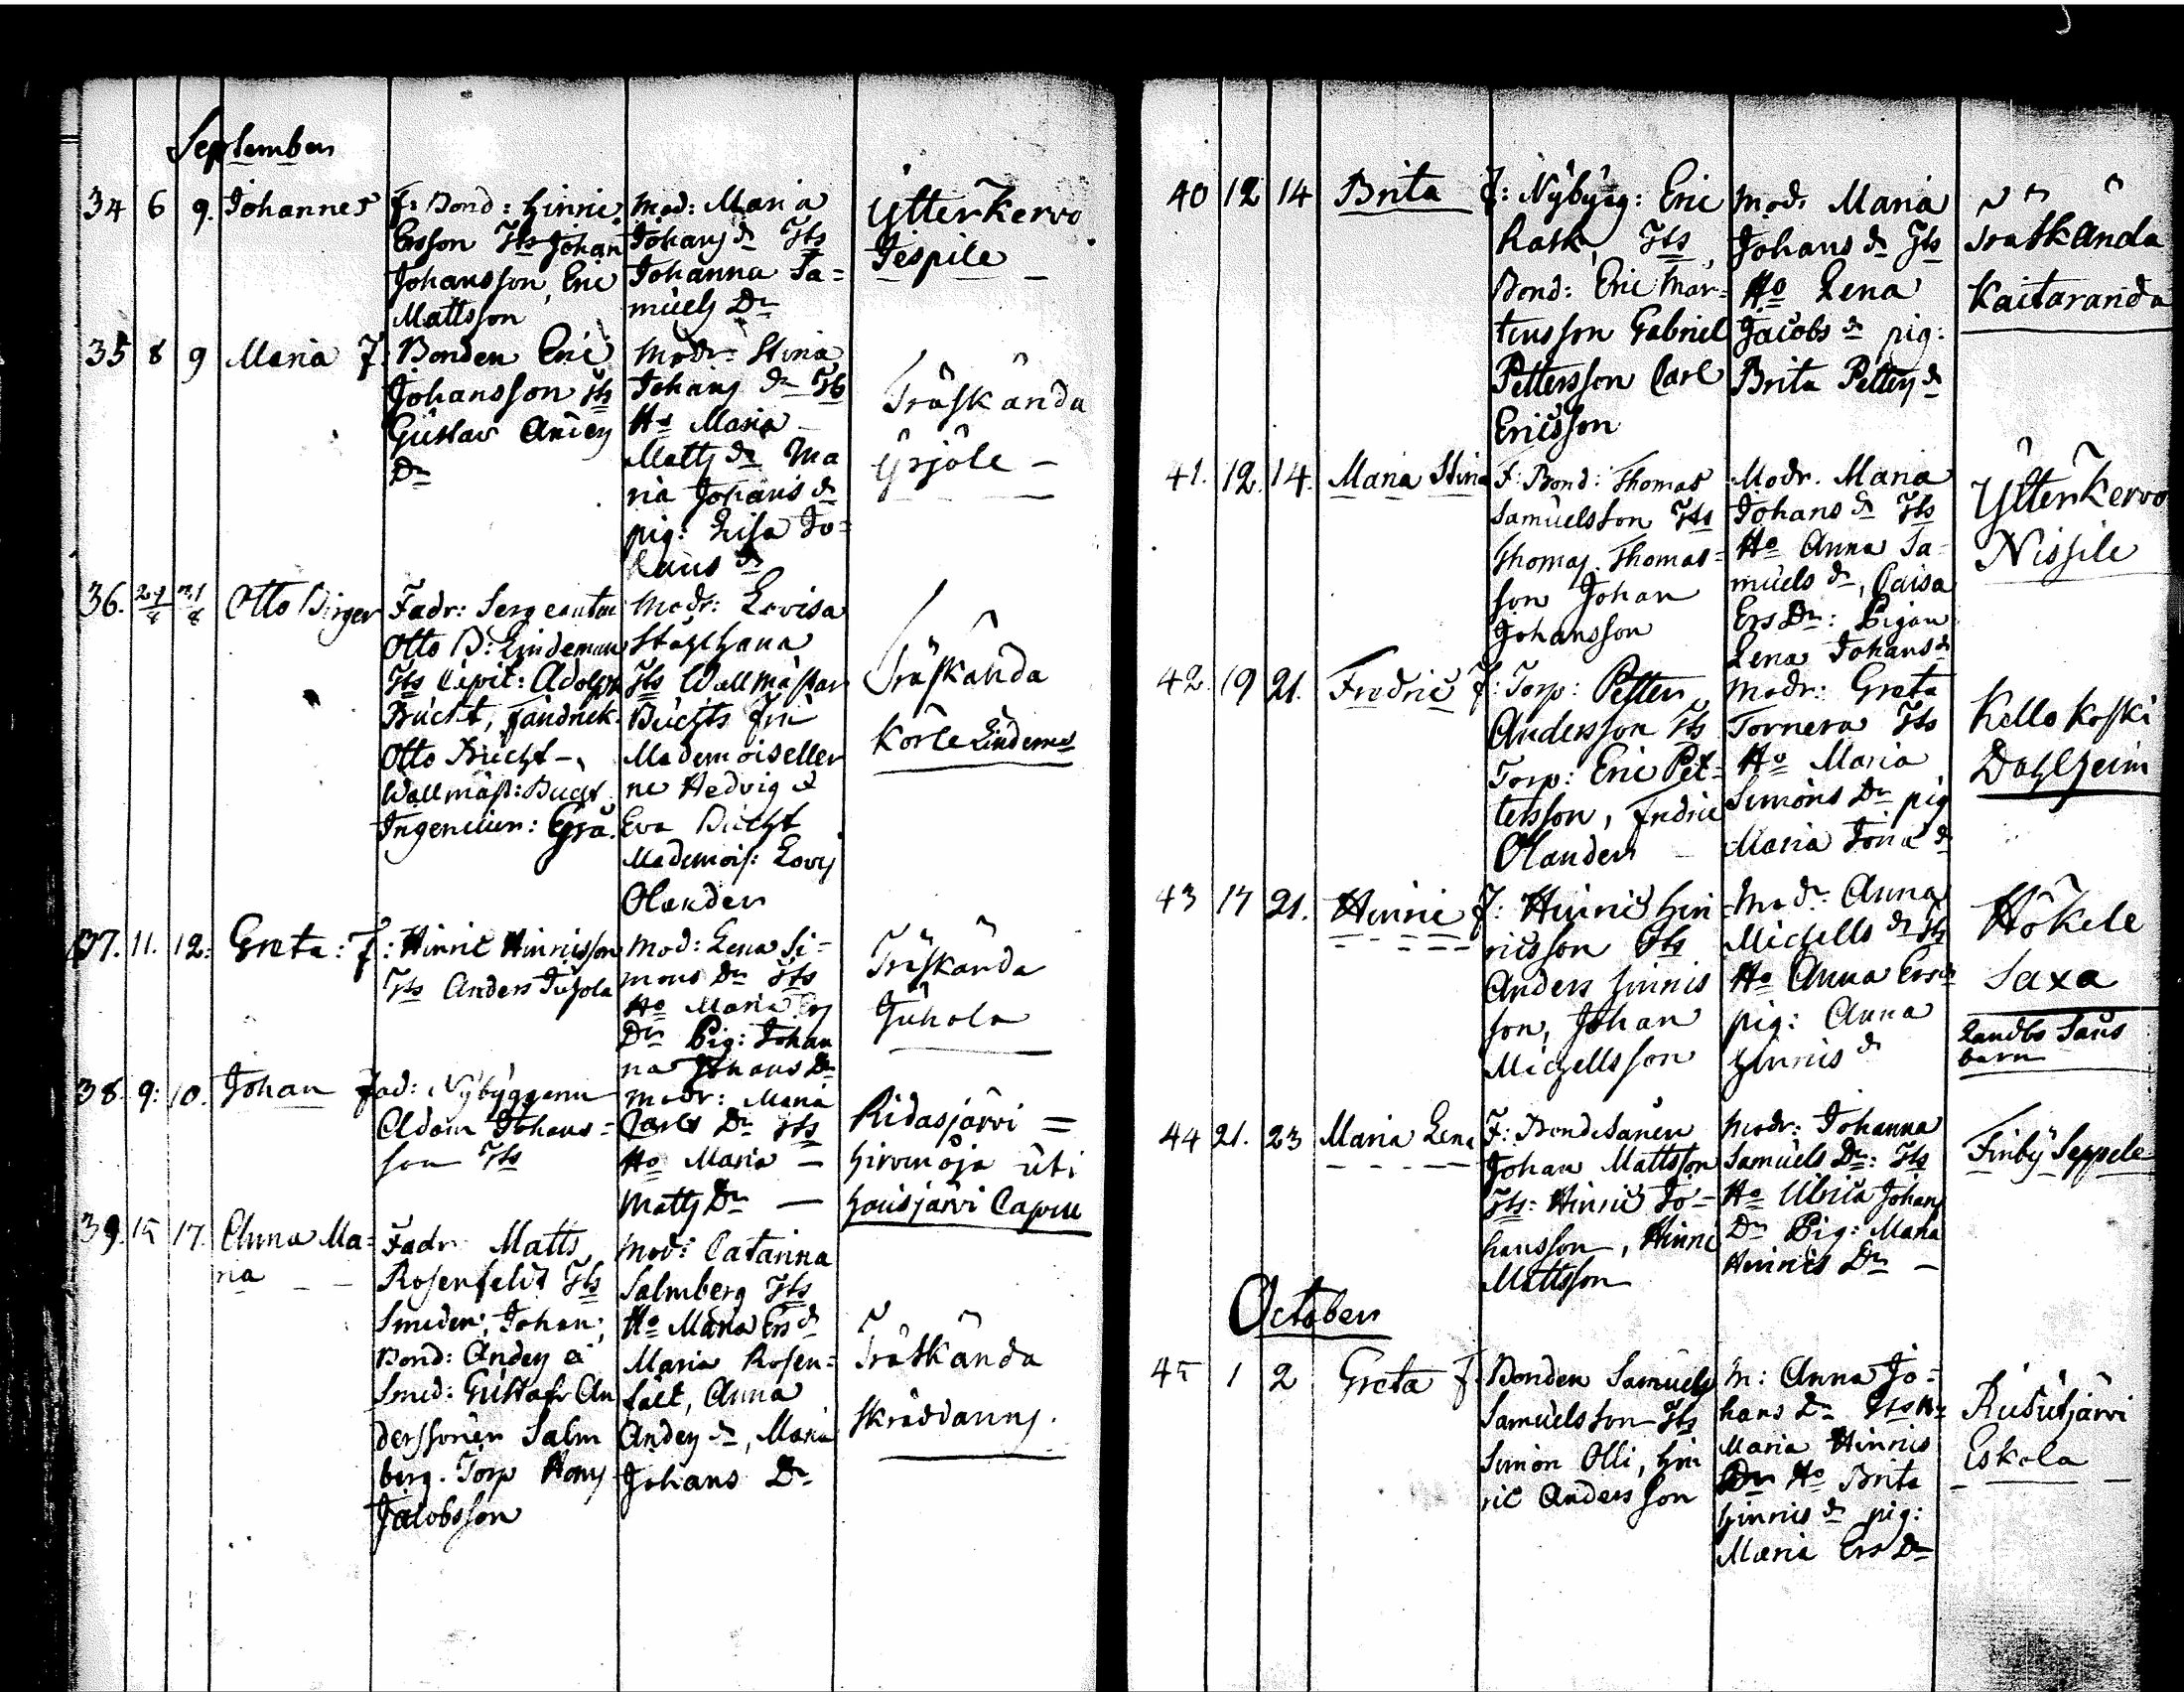 September
34 6 9. Johannes F: Bond: Hinric
Ersson Tts Johan
Johansson, Eric
Mattsson
Mod: Maria
Johans dr Tts
Johanna Sa=
muels Dr
Ytterkervo
Jespile
35 8 9 Maria F: Bonden Eric
Johansson Tts
Gustav Anders
Dr
Modr: Stina
Johans dr Tts
Ho Maria
Matts dr Ma
ria Johans dr
pig: Lisa Jo=
hans dr
Träskända
Yrjöle
36. 29/8 31/8 Otto Birger Fadr: Sergeanten
Otto B: Lindeman
Tts Capit: Adolph
Bucht, Fändrick
Otto Bucht
Wallmäst: Bucht
Ingenieur:
Modr: Lovisa
Stålhana
Tts Wallmästar
Buchts fru
Mademoiseller
ne Hedvig &
Eva Bucht
Mademois: Lovis
Olander
Träskända
Körle Lindem
37. 11. 12: Greta: F: Hinric Hinricsson
Tts Anders Juhola
Mod: Lena Si=
mons Dr Tts
Ho Maria Ers
Dr Pig: Johan
na Johans Dr
Träskända
Juhola
38. 9: 10. Johan Fad: Nybyggarn
Adam Johans=
son Tts
Modr: Maria
Carls Dr Tts
Ho Maria
Matts Dr
Ridasjärvi =
Hirvinoja uti
Hausjärvi Capell
39. 15 17. Anna Ma=
ria
Fadr Matts
Rosenfeldt Tts
Smeden: Johan:
Bond: Anders à
Smed: Gustaf An
derssoner Salm
berg. Torp Hans
Jacobsson
Mod: Catarina
Salmberg Tts
Ho Maria Ers dr
Maria Rosen=
falt, Anna
Anders dr, Maria
Johans Dr
Träskända
Skräddarns.
40 12 14 Brita F: Nybygg: Eric
Rask, Tts
Bond: Eric Mår=
tensson Gabriel
Pettersson Carl
Ericsson
Mod: Maria
Johans dr Tts
Ho Lena
Jacobs dr pig:
Brita Petters dr
Träskända
Kaitaranda
41. 12. 14. Maria Stina F: Bond: Thomas
Samuelsson Tts
Thomas Thomas=
son Johan
Johansson
Modr. Maria
Johans dr Tts
Ho Anna Sa=
muels dr, Caisa
Ers Dr: Pigan
Lena Johans dr
Ytterkervo
Nissile
42. 19 21. Fredric F: Torp: Petter
Andersson Tts
Torp: Eric Pet=
tersson, Fredric
Olander
Modr: Greta
Tornera Tts
Ho Maria
Simons Dr pig
Maria Jona dr
Kellokoski
Dahlheim
43 17 21. Hinric F: Hinric Hin
ricsson Tts
Anders Hinrics
son, Johan
Michellsson
Modr. Anna
Michells dr Tts
Ho Anna Ers dr
pig: Anna
Hinrics dr
Hökele
Saxa
Landbo
barn
44 21. 23 Maria Lena F: Bondesånen
Johan Mattsson
Tts: Hinric Jo=
hansson, Hinric
Mattsson
Modr: Johanna
Samuels Dr: Tts
Ho Ulrica Johans
Dr Pig: Maria
Hinrics Dr
Finby Seppele
October
45 1 2 Greta F: Bonden Samuels
Samuelsson Tts
Simon Olli, Hin
ric Andersson
M: Anna Jo=
hans Dr Tts Ho
Maria Hinrics
Dr Ho Brita
Hinrics dr pig:
Maria Ers Dr
Rusutjärvi
Eskola